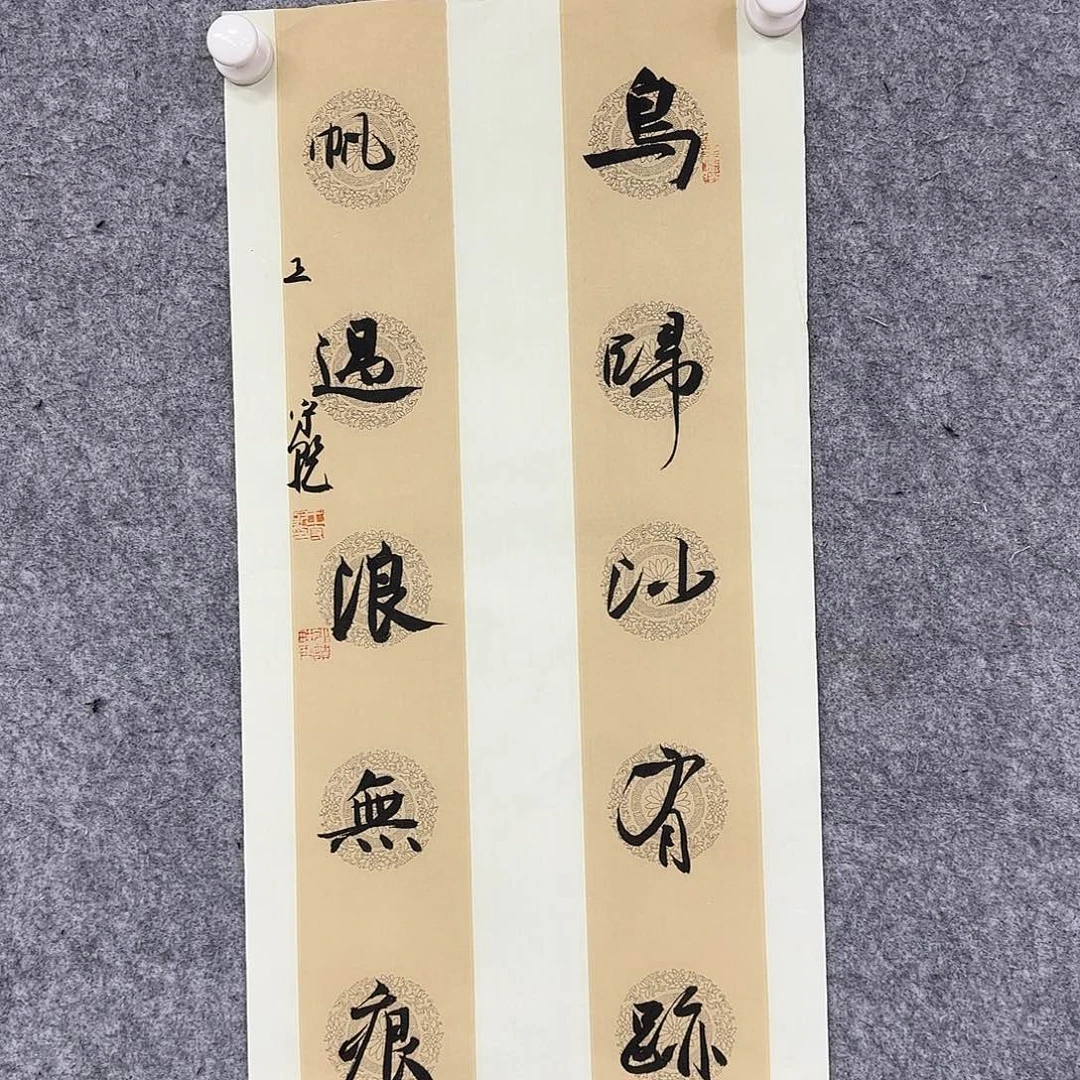 鳥歸沙有跡
帆過浪無痕
王守乾